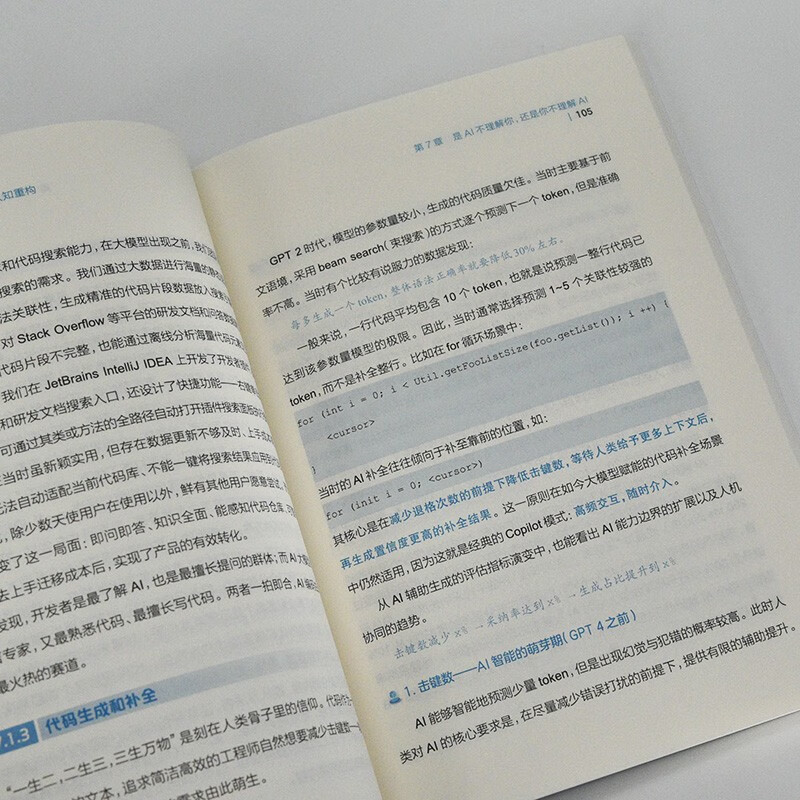 知重构
和代码搜索能力，在大模型出现之前，我们
搜索的需求。我们通过大数据进行海量的
法关联性，生成精准的代码片段数据放入搜索
对 Stack Overflow 等平台的研发文档和问答数
代码片段不完整，也能通过离线分析海量代码
我们在 JetBrains IntelliJ IDEA 上开发了开发者
和研发文档搜索入口，还设计了快捷功能——右键
可通过其类或方法的全路径自动打开插件搜索面板
在当时虽新颖实用，但存在数据更新不够及时、上手成
无法自动适配当前代码库、不能一键将搜索结果应用
，除少数天使用户在使用以外，鲜有其他用户愿意尝试
变了这一局面：即问即答、知识全面，能感知代码仓库
去上手迁移成本后，实现了产品的有效转化。
发现，开发者是最了解 AI，也是最擅长提问的群体；而 AI 大
专家，又最熟悉代码、最擅长写代码。两者一拍即合，AI 编
最火热的赛道。
7.1.3 代码生成和补全
“一生二，二生三，三生万物”是刻在人类骨子里的信仰。代码作
的文本，追求简洁高效的工程师自然想要减少击键
需求由此萌生。
第 7 章 是 AI 不理解你，还是你不理解 AI
| 105
GPT 2 时代，模型的参数量较小，生成的代码质量欠佳。当时主要基于前
文语境，采用 beam search（束搜索）的方式逐个预测下一个 token，但是准确
率不高。当时有个比较有说服力的数据发现：
每多生成一个 token，整体语法正确率就要降低30% 左右。
一般来说，一行代码平均包含 10 个 token，也就是说预测一整行代码已
达到该参数量模型的极限。因此，当时通常选择预测 1~5 个关联性较强的
token，而不是补全整行。比如在 for 循环场景中：
for (int i = 0; i < Util.getFooListSize(foo.getList()); i ++) {
<cursor>
}
当时的 AI 补全往往倾向于补至靠前的位置，如：
for (init i = 0; <cursor>)
其核心是在减少退格次数的前提下降低击键数，等待人类给予更多上下文后，
再生成置信度更高的补全结果。这一原则在如今大模型赋能的代码补全场景
中仍然适用，因为这就是经典的 Copilot 模式：高频交互，随时介入。
从 AI 辅助生成的评估指标演变中，也能看出 AI 能力边界的扩展以及人机
协同的趋势。
击键数减少 x% → 采纳率达到 x% → 生成占比提升到 x%
1. 击键数——AI 智能的萌芽期（GPT 4 之前）
AI 能够智能地预测少量 token，但是出现幻觉与犯错的概率较高。此时人
类对 AI 的核心要求是，在尽量减少错误打扰的前提下，提供有限的辅助提升。